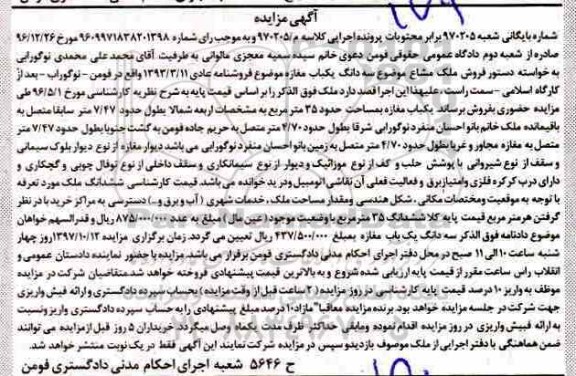 آگهی مزایده
شماره بایگانی شعبه ۹۷۰۲۰۵ برابر محتویات پرونده اجرایی کلاسه م ۹۷۰۲۰۵/ و به موجب رای شماره ۹۶۰۹۹۷۱۸۳۸۲۰۱۳۹۸ مورخ ۹۶/۱۲/۲۶
صادره از شعبه دوم دادگاه عمومی حقوقی فومن دعوی خانم سیده سمیه معجزی ماتوانی به طرفیت آقای محمد علی محمدی نوگورابی
به خواسته دستور فروش ملک مشاع موضوع سه دانگ یکباب مغازه موضوع فروشنامه عادی ۱۳۹۳/۳/۱۱ واقع در فومن - نوگوراب - بعد از
کارگاه اسلامی - سمت راست، علیهذا این اجرا قصد دارد ملک فوق الذکر را بر اساس قیمت پایه به شرح نظریه کارشناسی مورخ ۹۶/۵/۱ طی
مزایده حضوری بفروش برساند. یکباب مغازه بمساحت حدود ۳۵ متر مربع به مشخصات اربعه شمالا بطول حدود ۷/۴۷ متر سابقا متصل به
باقیمانده ملک خانم بانو احسان منفرد نوگورابی شرقا بطول حدود ۴/۷۰ متر متصل به حریم جاده فومن به گشت جنوبا بطول حدود ۷/۴۷ متر
متصل به مغازه مجاور و غربا بطول حدود ۴/۷۰ متر متصل به زمین بانو احسان منفرد نوگورابی می باشد دیوار مغازه از نوع دیوار بلوک سیمانی
و سقف از نوع شیروانی با پوشش حلب و کف از نوع موزائیک و دیوار از نوع سیمانکاری و سقف داخلی از نوع توفال چوبی و گچکاری و
دارای درب کرکره فلزی و امتیاز برق و فعالیت فعلی آن نقاشی اتومبیل و در ید خوانده می باشد. قیمت کارشناسی ششدانگ ملک مورد تعرفه
با توجه به موقعیت و مختصات مکانی، شکل هندسی و مقدار مساحت ملک، خدمات شهری (آب و برق و...) دسترسی به مراکز خرید با در نظر
گرفتن هر متر مربع قیمت پایه کلا ششدانگ ۳۵ متر مربع با وضعیت موجود (عین مال) مبلغ به عدد ۸۷۵/۰۰۰/۰۰۰ ریال و قدرالسهم خواهان
موضوع دادنامه فوق الذکر سه دانگ یک باب مغازه بمبلغ ۴۳۷/۵۰۰/۰۰۰ ریال تعیین می گردد. زمان برگزاری مزایده ۱۳۹۷/۱۰/۱۲ روز چهار
شنبه ساعت ۱۰ الی ۱۱ صبح در محل دفتر اجرای احکام مدنی دادگستری فومن برقرار می باشد. مزایده با حضور نماینده دادستان عمومی و
انقلاب راس ساعت مقرر از قیمت پایه ارزیابی شده شروع و به بالاترین قیمت پیشنهادی فروخته خواهد شد. متقاضیان شرکت در مزایده
موظف به واریز ۱۰ درصد قیمت پایه کارشناسی در روز مزایده (۲ ساعت قبل از وقت مزایده) بحساب سپرده دادگستری و ارائه فیش واریزی
جهت شرکت در جلسه مزایده خواهد بود. برنده مزایده معاقبا" مازاد ۱۰ درصد مبلغ پیشنهادی را به حساب سپرده دادگستری واریز و نسبت
به ارائه فیش واریزی در روز مزایده اقدام نموده و مابقی حداکثر ظرف مدت یکماه وصول میگردد. خریداران ۵ روز قبل از مزایده می توانند
ضمن هماهنگی با دفتر اجرایی از ملک موصوف بازدید و سپس در مزایده شرکت نمایند. این آگهی فقط در یک نوبت منتشر خواهد شد.
ح ۵۶۴۶ شعبه اجرای احکام مدنی دادگستری فومن